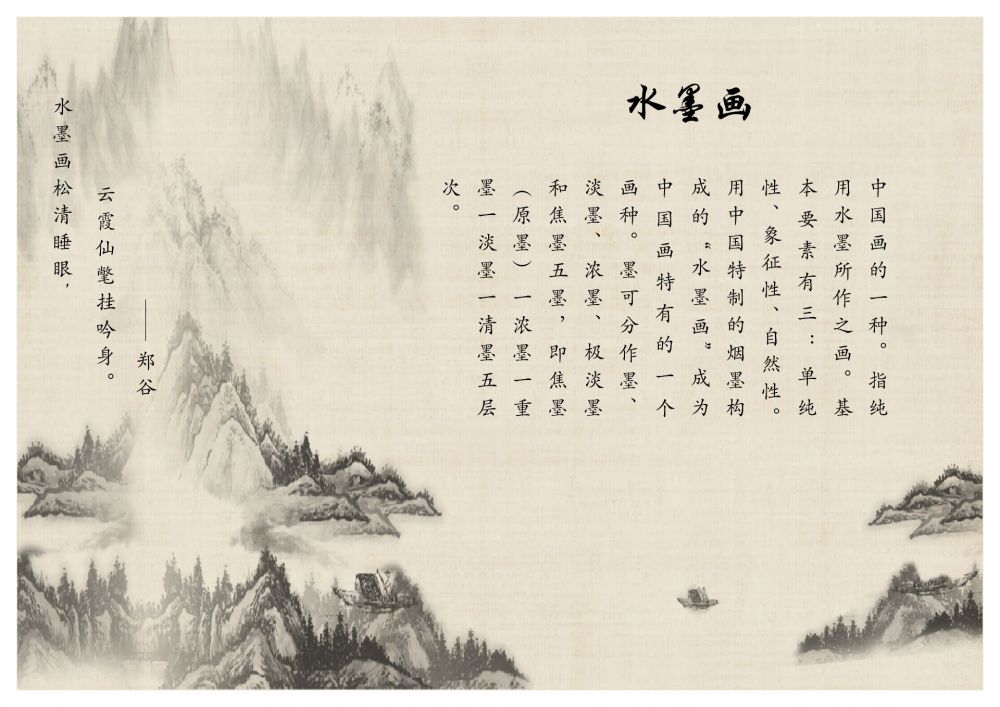 水墨画
中国画的一种。指纯
用水墨所作之画。基
本要素有三：单纯
性、象征性、自然性。
用中国特制的烟墨构
成的“水墨画”成为
中国画特有的一个
画种。墨可分作墨、
淡墨、浓墨、极淡墨
和焦墨五墨，即焦墨
（原墨）一浓墨一重
墨一淡墨一清墨五层
次。
水墨画松清睡眼，
云霞仙氅挂吟身。
——郑谷